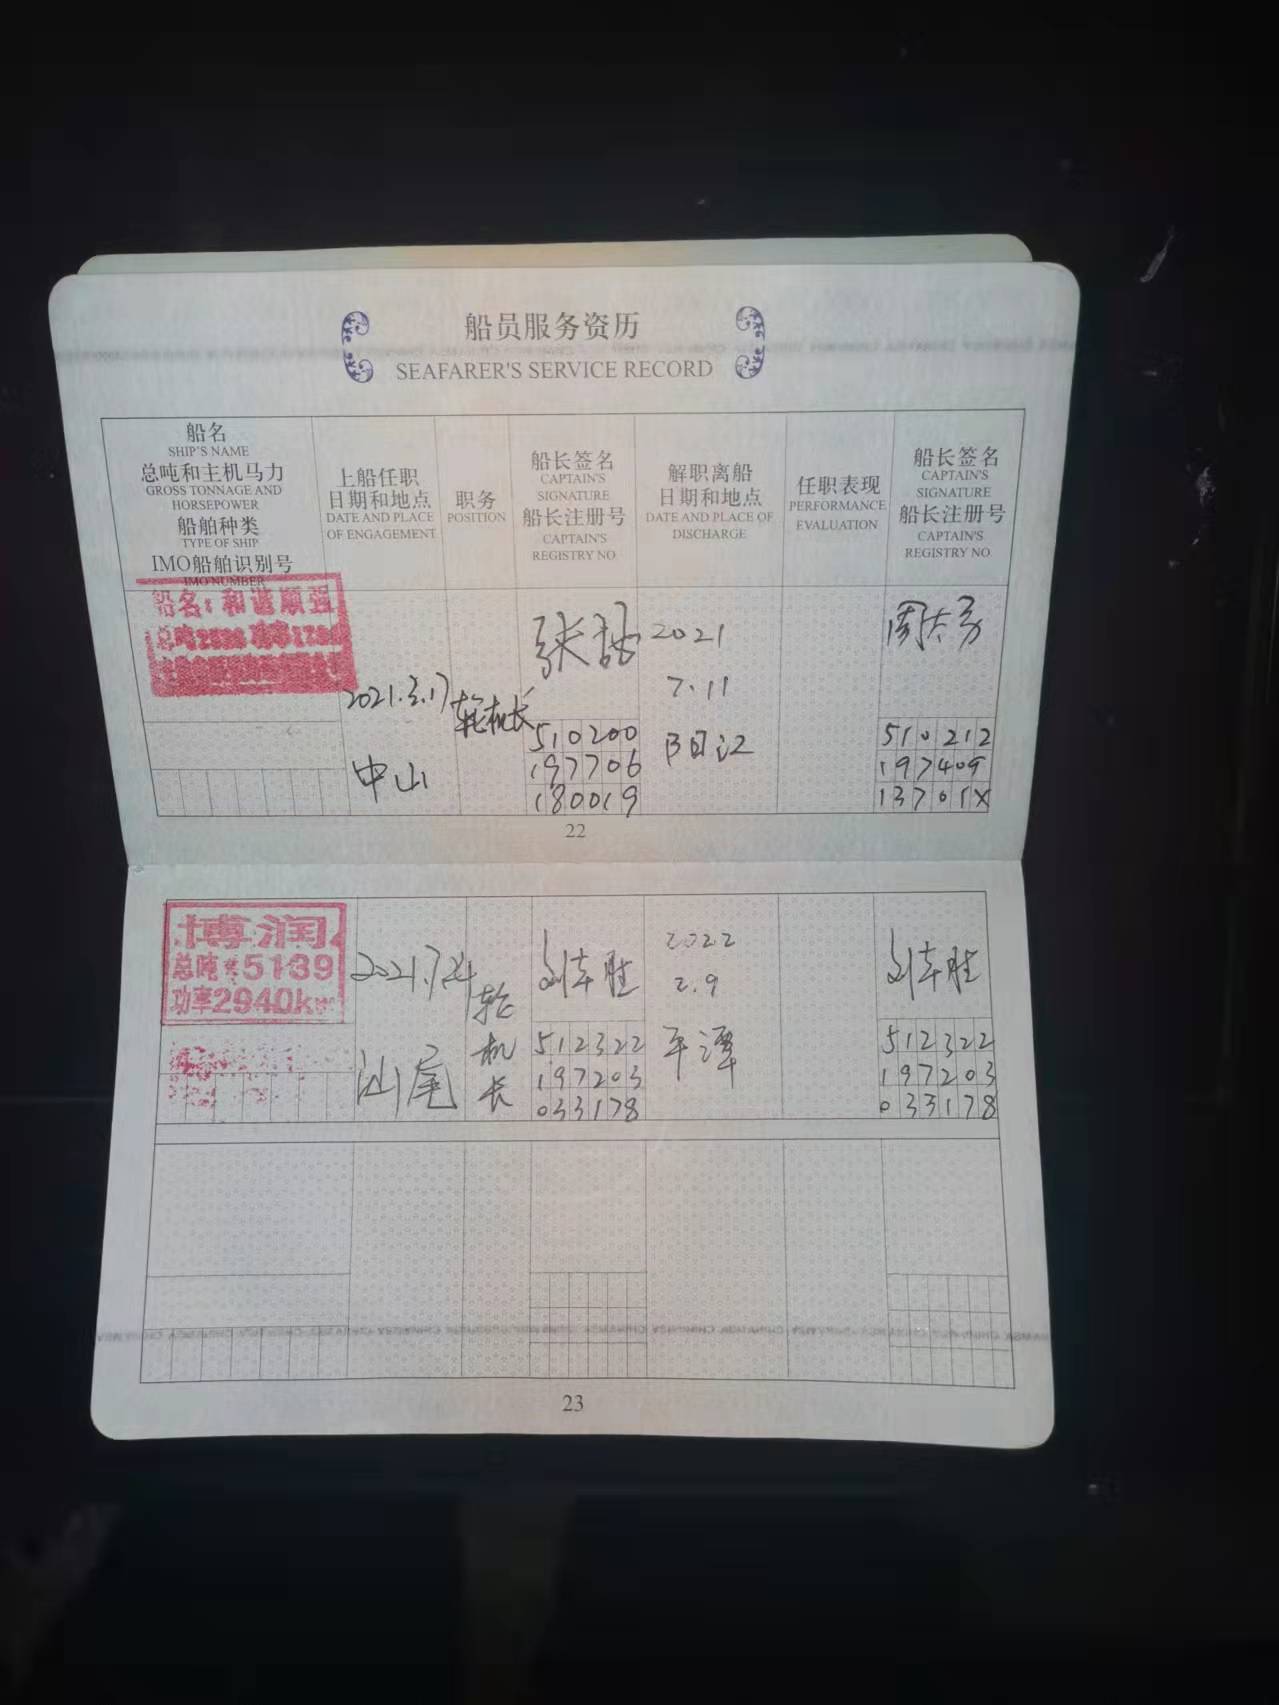 船员服务资历
SEAFARER'S SERVICE RECORD
船名
SHIP'S NAME
总吨和主机马力
GROSS TONNAGE AND
HORSEPOWER
船舶种类
TYPE OF SHIP
IMO船舶识别号
IMO NUMBER
上船任职
日期和地点
DATE AND PLACE
OF ENGAGEMENT
职务
POSITION
船长签名
CAPTAIN'S
SIGNATURE
船长注册号
CAPTAIN'S
REGISTRY NO
解职离船
日期和地点
DATE AND PLACE OF
DISCHARGE
任职表现
PERFORMANCE
EVALUATION
船长签名
CAPTAIN'S
SIGNATURE
船长注册号
CAPTAIN'S
REGISTRY NO
船名:和谐顺强
2021.3.17
中山
轮机长
张
510200
197706
180019
2021
7.11
阳江
周
510212
197409
13701X
22
博润
总吨:5139
功率2940kw
2021.7.24
汕尾
轮
机
长
512322
197203
033178
2022
2.9
平潭
512322
197203
033178
23